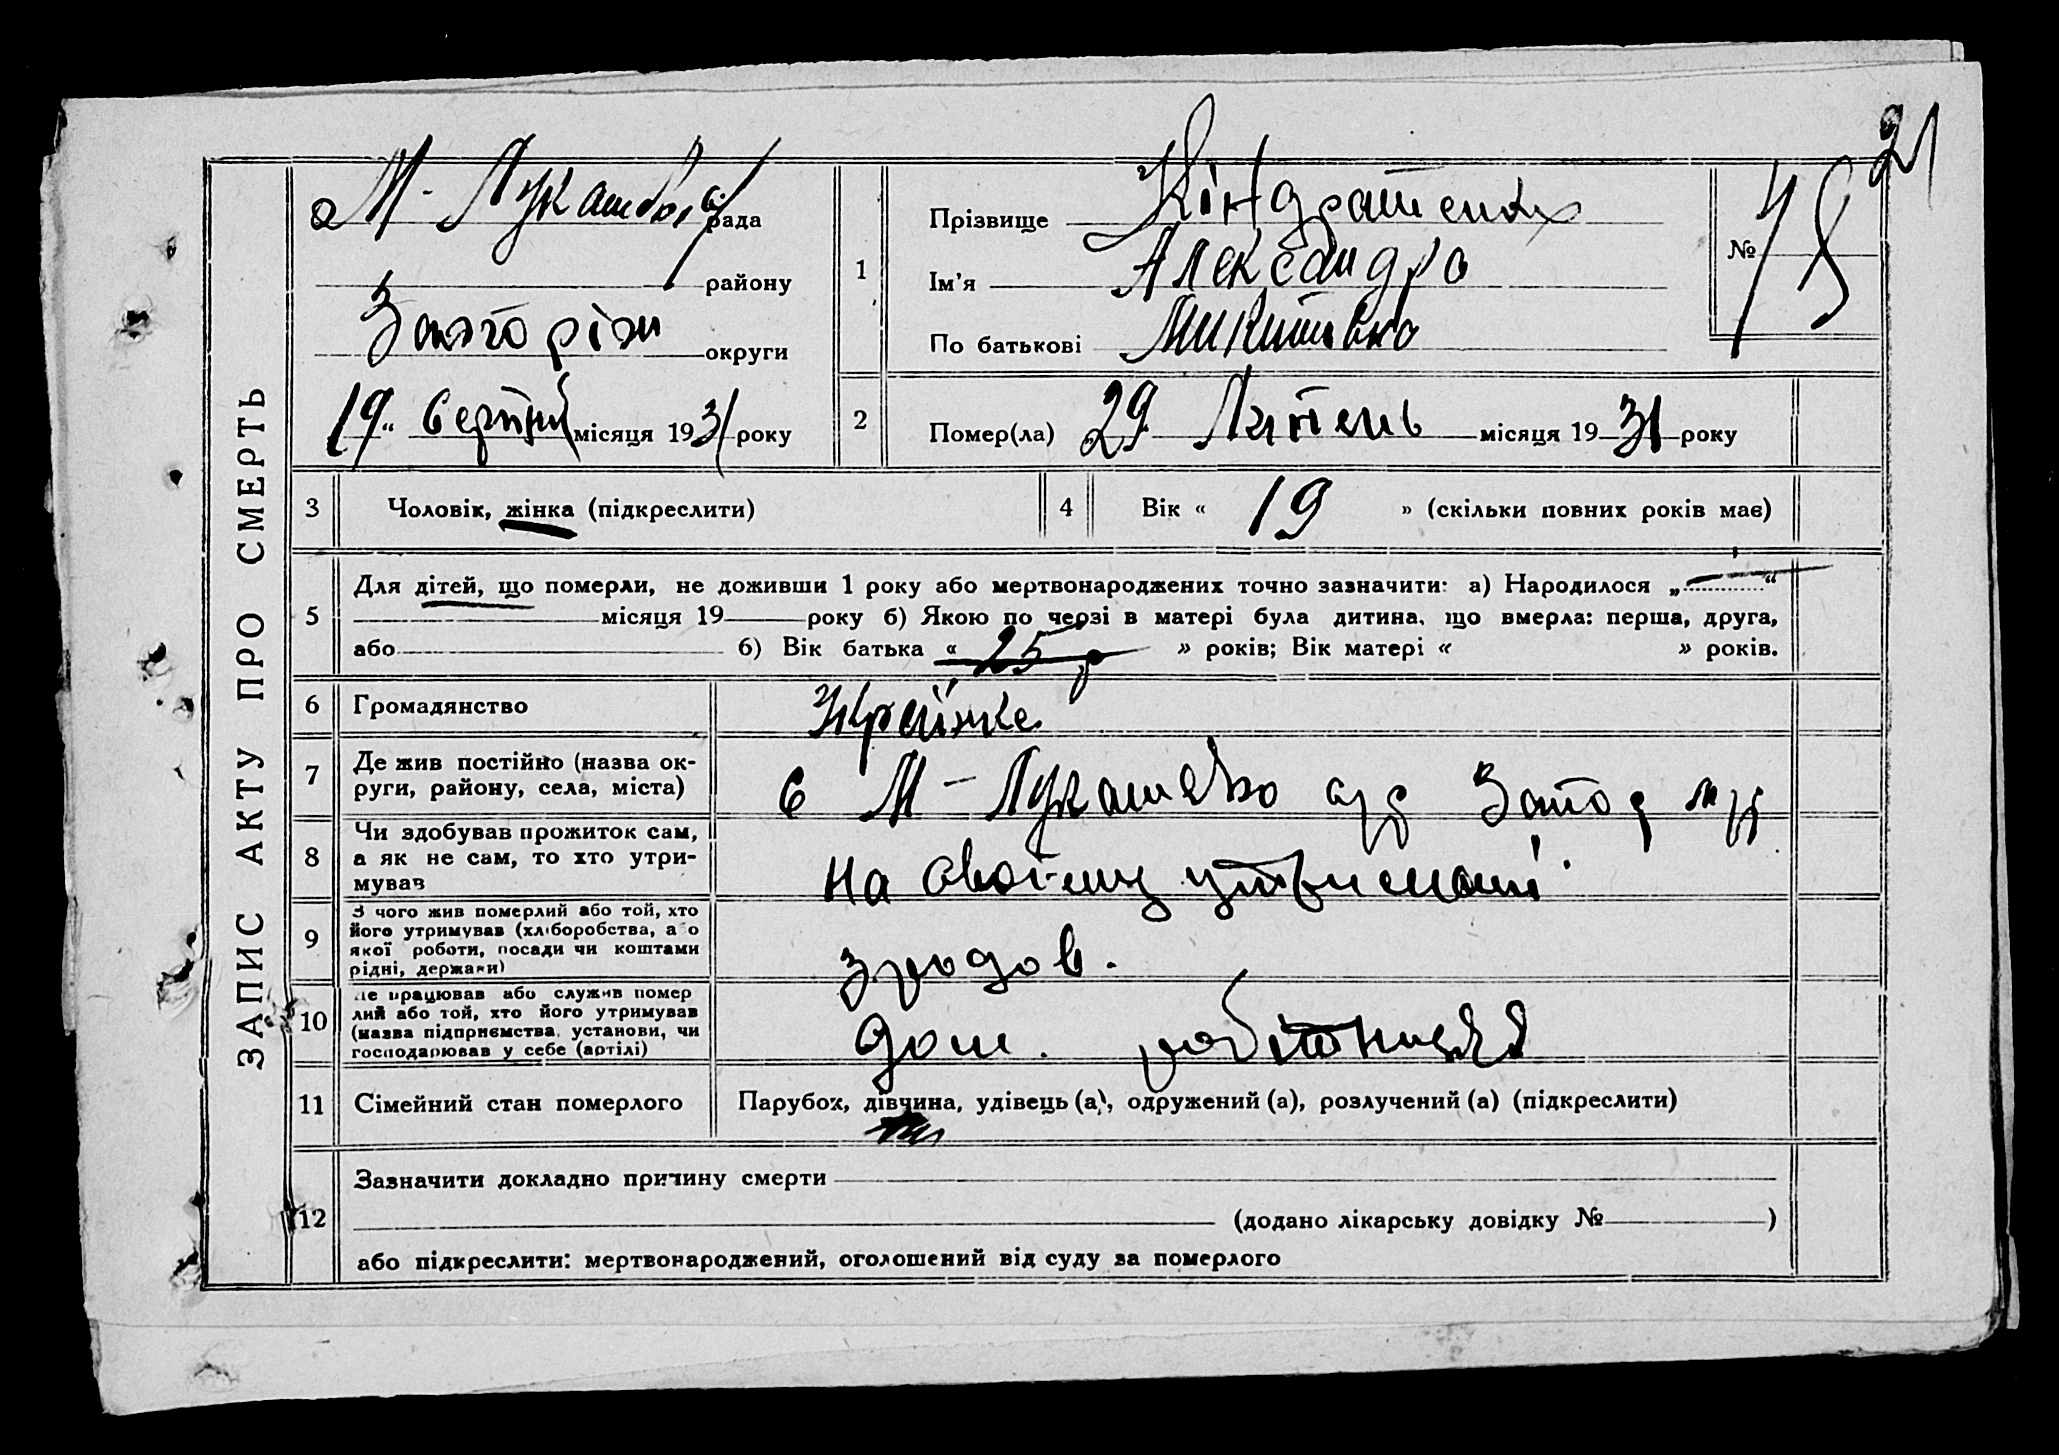 21
М-Лукашів
рада
району
округи
19 " Серпня місяця 1931 року
1
Прізвище Кіндратенко
Ім'я Александра
По батькові Микитівна
№ 78
2
Помер(ла) 29 Липень місяця 19 31 року
ЗАПИС АКТУ ПРО СМЕРТЬ
3 Чоловік, жінка (підкреслити)
4 Вік « 19 » (скільки повних років має)
5
Для дітей, що померли, не доживши 1 року або мертвонароджених точно зазначити: а) Народилося „ “
місяця 19 року б) Якою по черзі в матері була дитина, що вмерла: перша, друга,
або б) Вік батька « 25 р » років; Вік матері « » років.
6 Громадянство
Українка
7 Де жив постійно (назва ок-
руги, району, села, міста)
с М-Лукашево
8
Чи здобував прожиток сам,
а як не сам, то хто утри-
мував
на своїму утриманні
9
З чого жив померлий або той, хто
його утримував (хліборобства, або
якої роботи, посади чи коштами
рідні, держави)
10
Де працював або служив помер
лий або той, хто його утримував
(назва підприємства, установи, чи
господарював у себе (артілі)
дом. робітниця
11 Сімейний стан померлого
Парубок, дівчина, удівець (а), одружений (а), розлучений (а) (підкреслити)
12
Зазначити докладно причину смерти
(додано лікарську довідку № )
або підкреслити: мертвонароджений, оголошений від суду за померлого